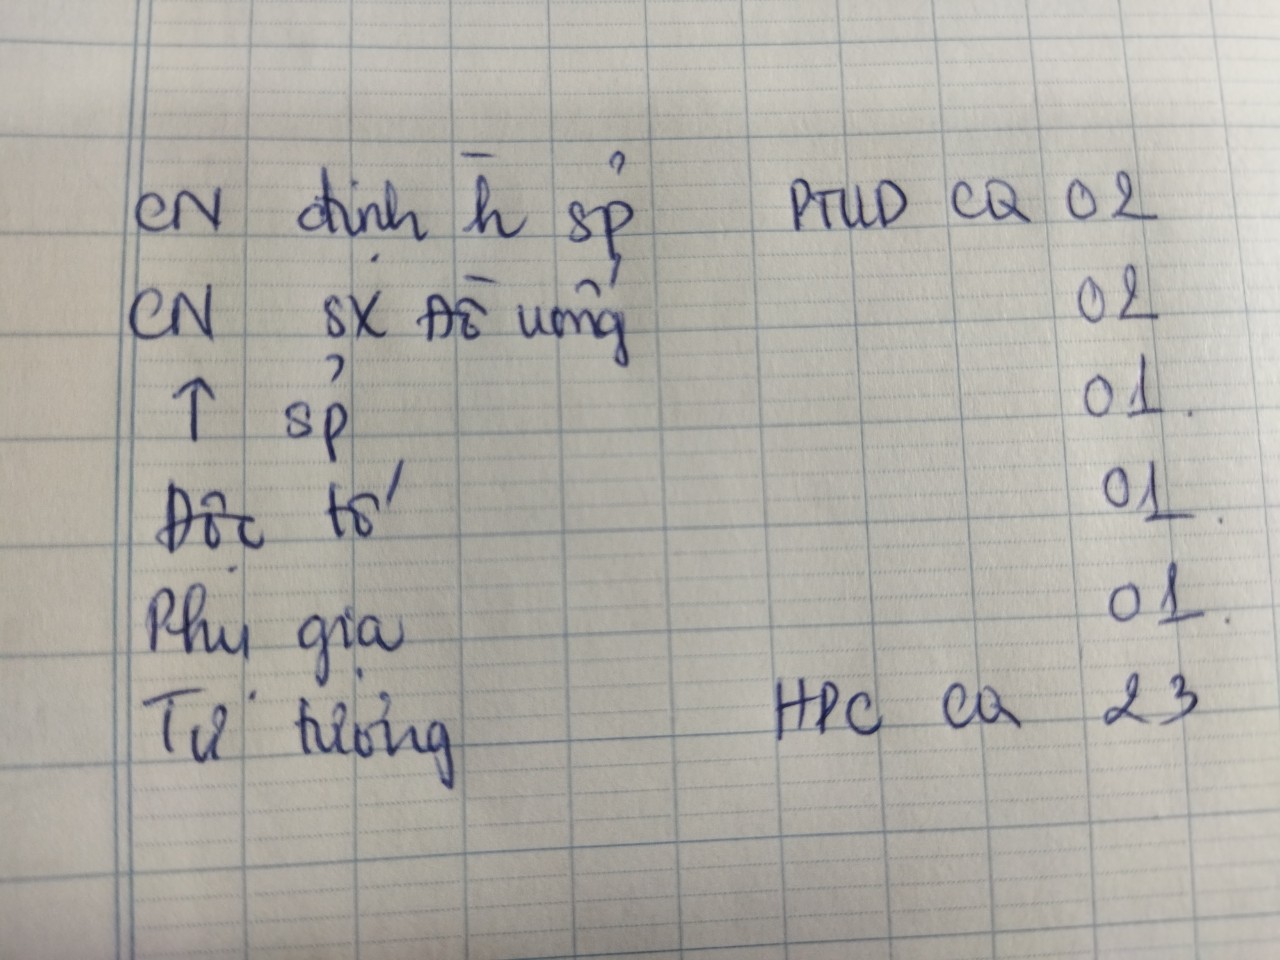 CN định h̄ sp̉ PTUD CQ 02
CN sx Đồ uống 02
↑ sp̉ 01.
Độc tố 01.
Phụ gia 01.
Tư tưởng HPC CQ 23